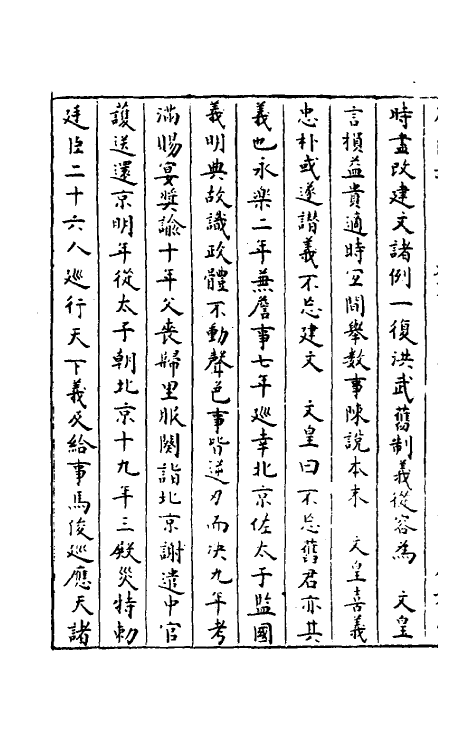 時盡改建文諸例一復洪武舊制義從容為　文皇
言損益貴適時宜間舉數事陳說本末　文皇喜義
忠朴或遂譛義不忘建文　文皇曰不忘舊君亦其
義也永樂二年兼詹事七年巡幸北京佐太子監國
義明典故識政體不動聲色事皆迎刃而决九年考
滿賜宴奬諭十年父喪歸里服闋詣北京謝遣中官
護送還京明年從太子朝北京十九年三殿災特勅
廷臣二十六人巡行天下義及給事馬俊巡應天諸